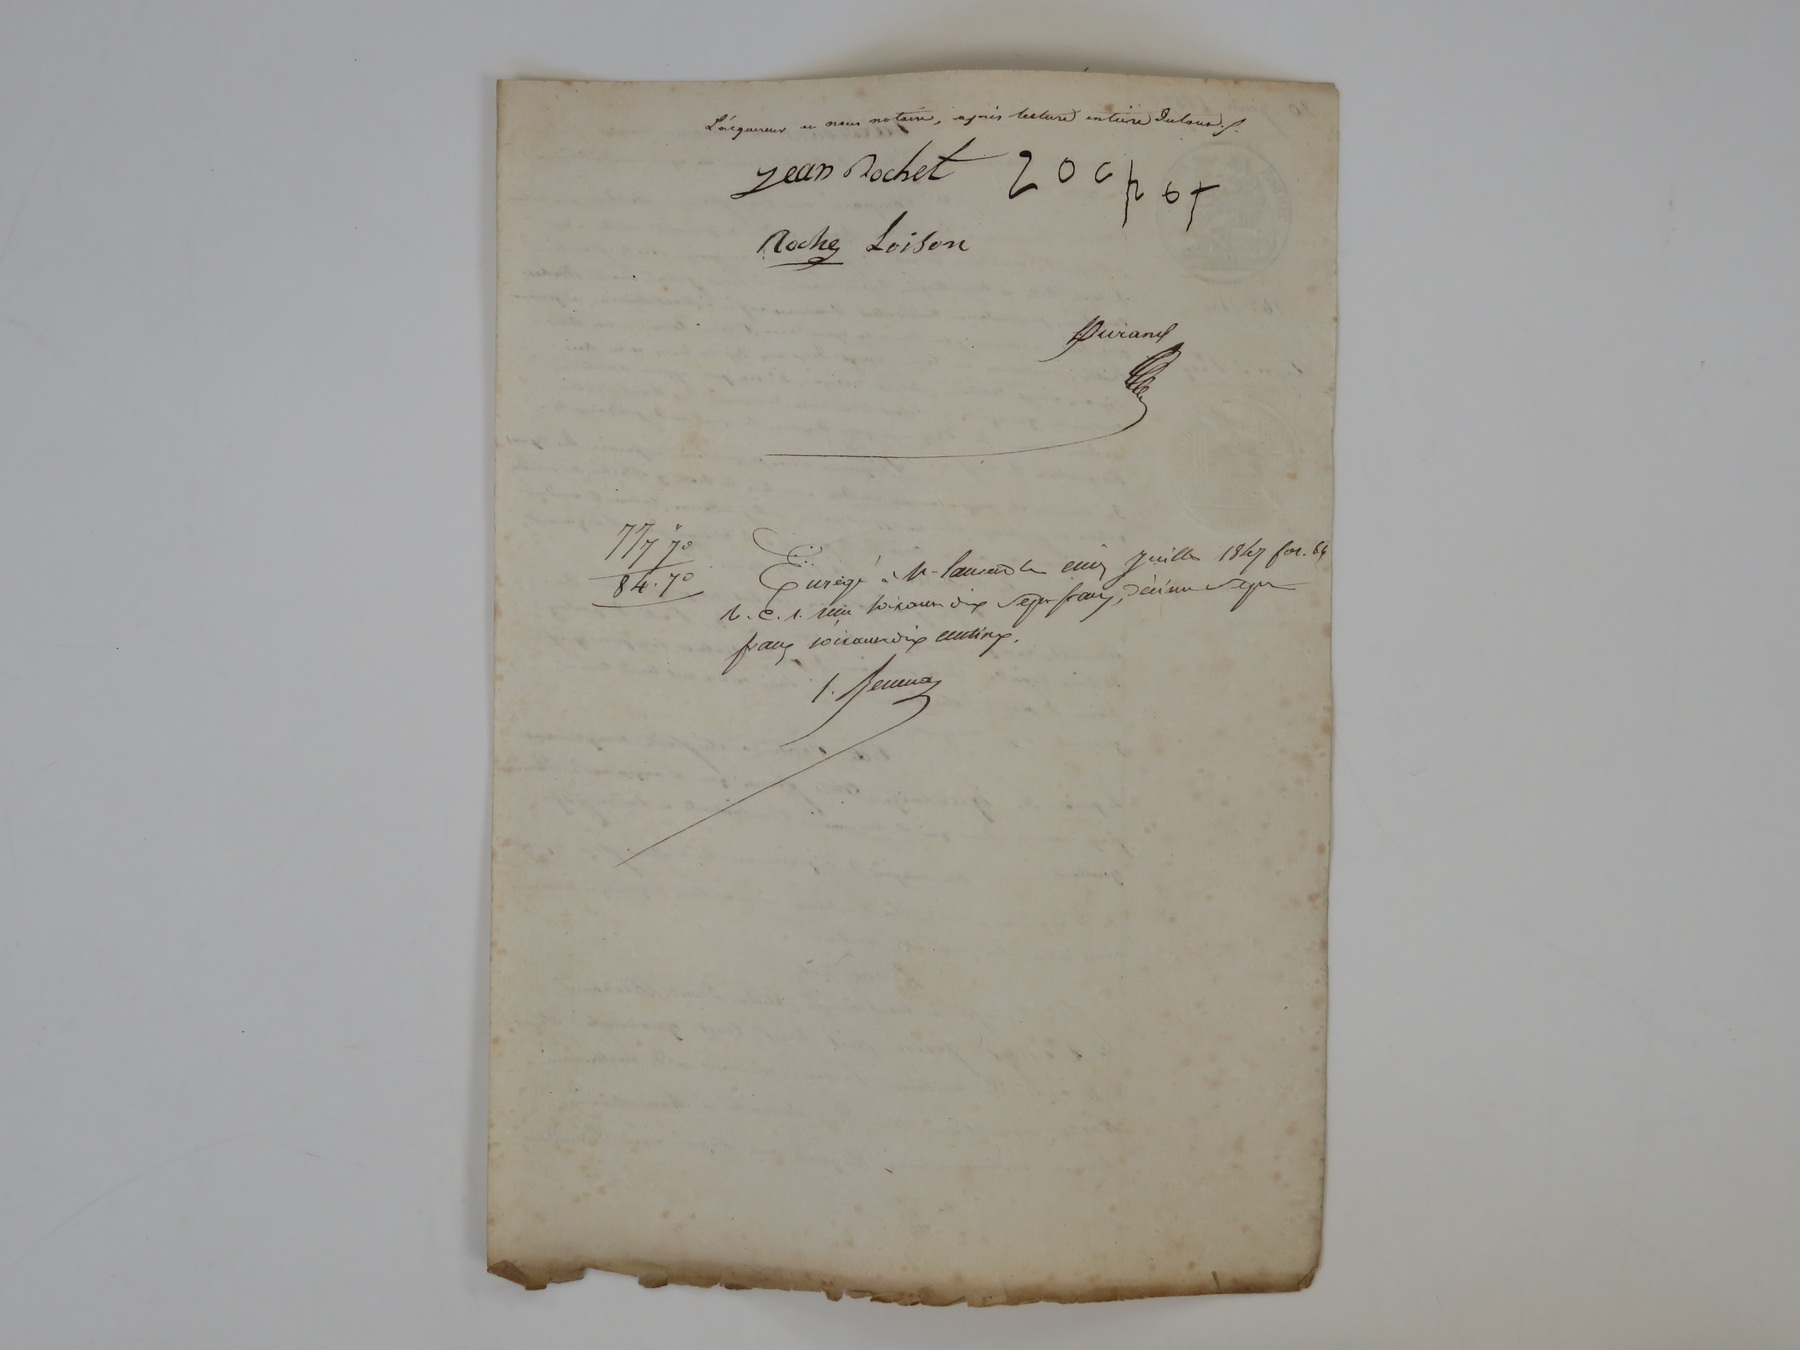 L'acquereur et nous notaire, après lecture entière du tout./.
Jean Rochet
Roche Loison
Durand
77
7 70
84.70
Enregé à St Laurent le cinq Juillet 1847 for. 64
v. c. 1. reçu soixante dix sept francs, décime sept
francs soixante dix centimes.